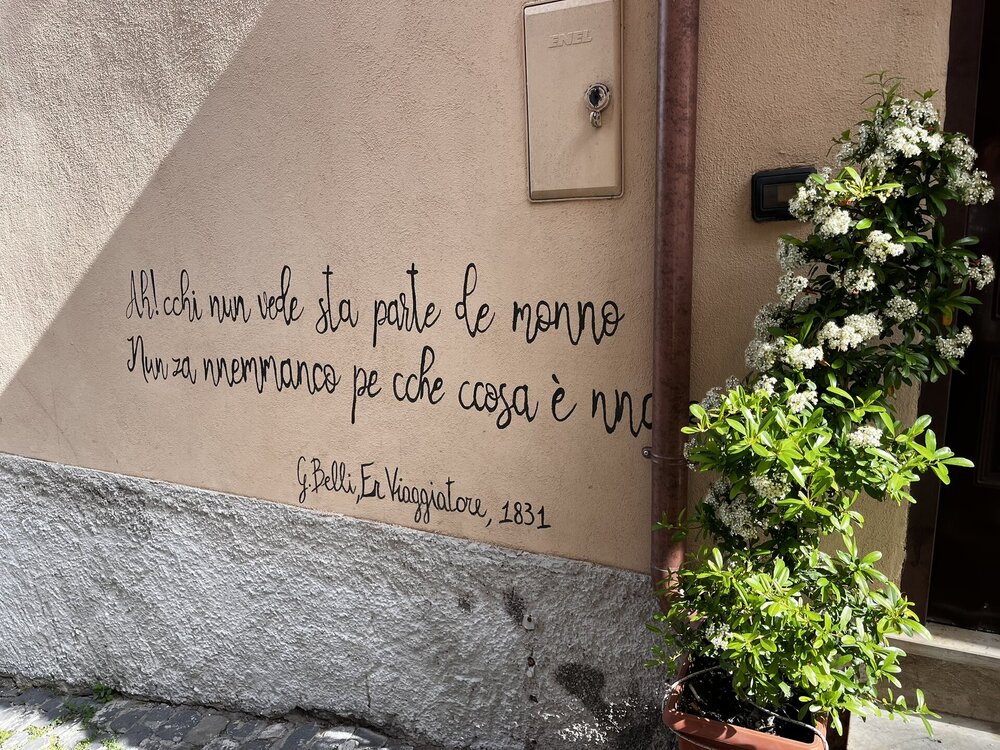 ENEL
Ah! cchi nun vede sta parte de monno
Nun za nnemmanco pe cche ccosa è
G. Belli, Er Viaggiatore, 1831